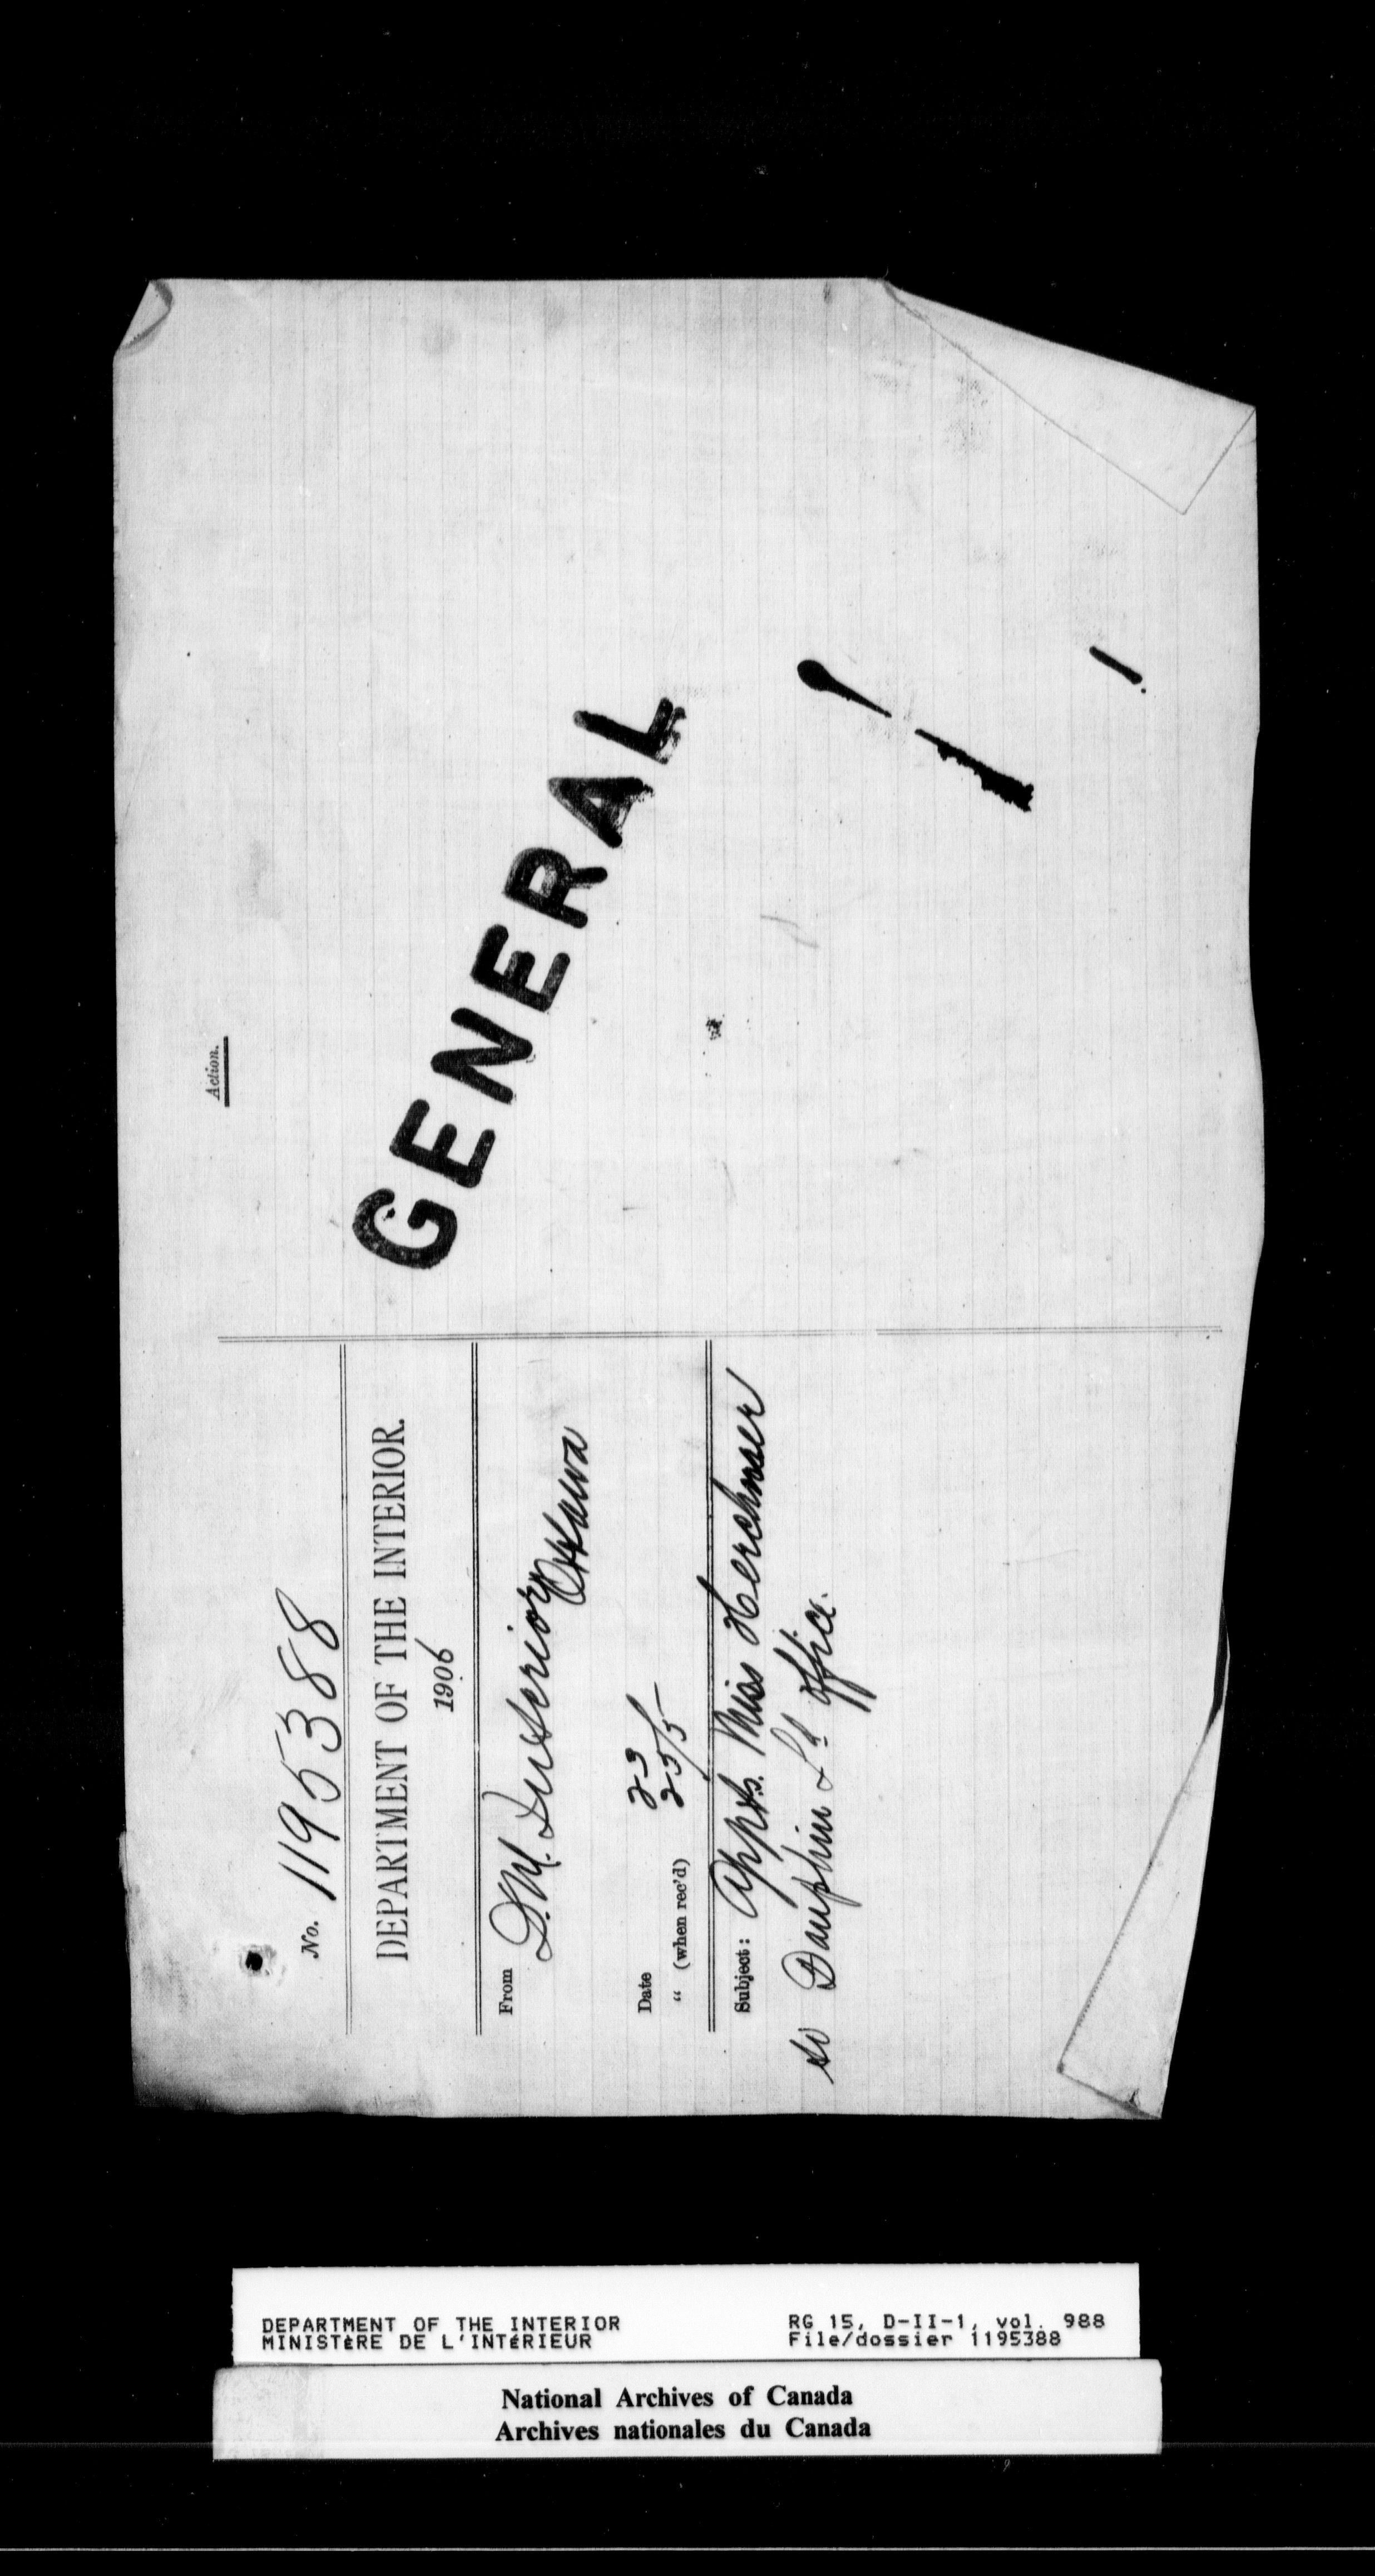 Action.
GENERAL
No. 1195388
DEPARTMENT OF THE INTERIOR.
1906
From D.M. Interior Ottawa
Date 23
" (when rec'd) 25/5
Subject: Appt. Miss Herchmer
to Dauphin Ld Office.
DEPARTMENT OF THE INTERIOR
MINISTÈRE DE L'INTÉRIEUR
RG 15, D-II-1, vol. 988
File/dossier 1195388
National Archives of Canada
Archives nationales du Canada